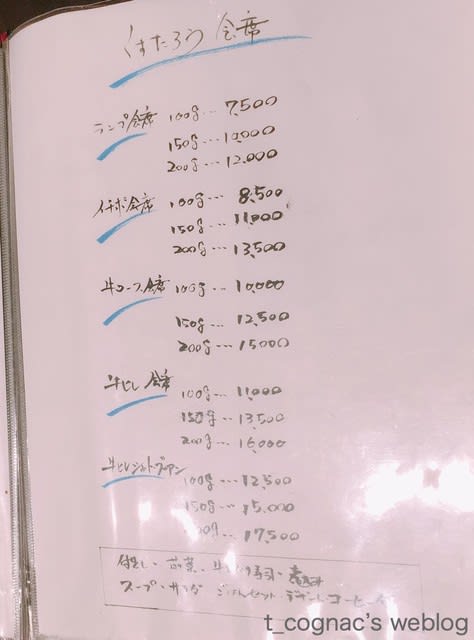 くすたろう 会席
ランプ会席 100g… 7,500
150g… 10,000
200g… 12,000
イチボ会席 100g… 8,500
150g… 11,000
200g… 13,500
牛ロース会席 100g… 10,000
150g… 12,500
200g… 15,000
牛ヒレ会席 100g… 11,000
150g… 13,500
200g… 16,000
牛ヒレシャトーブリアン 100g… 12,500
150g… 15,000
00g… 17,500
付出し・前菜・牛 寿司・
スープ・サラダ セット・デザート コーヒー
t_cognac's weblog